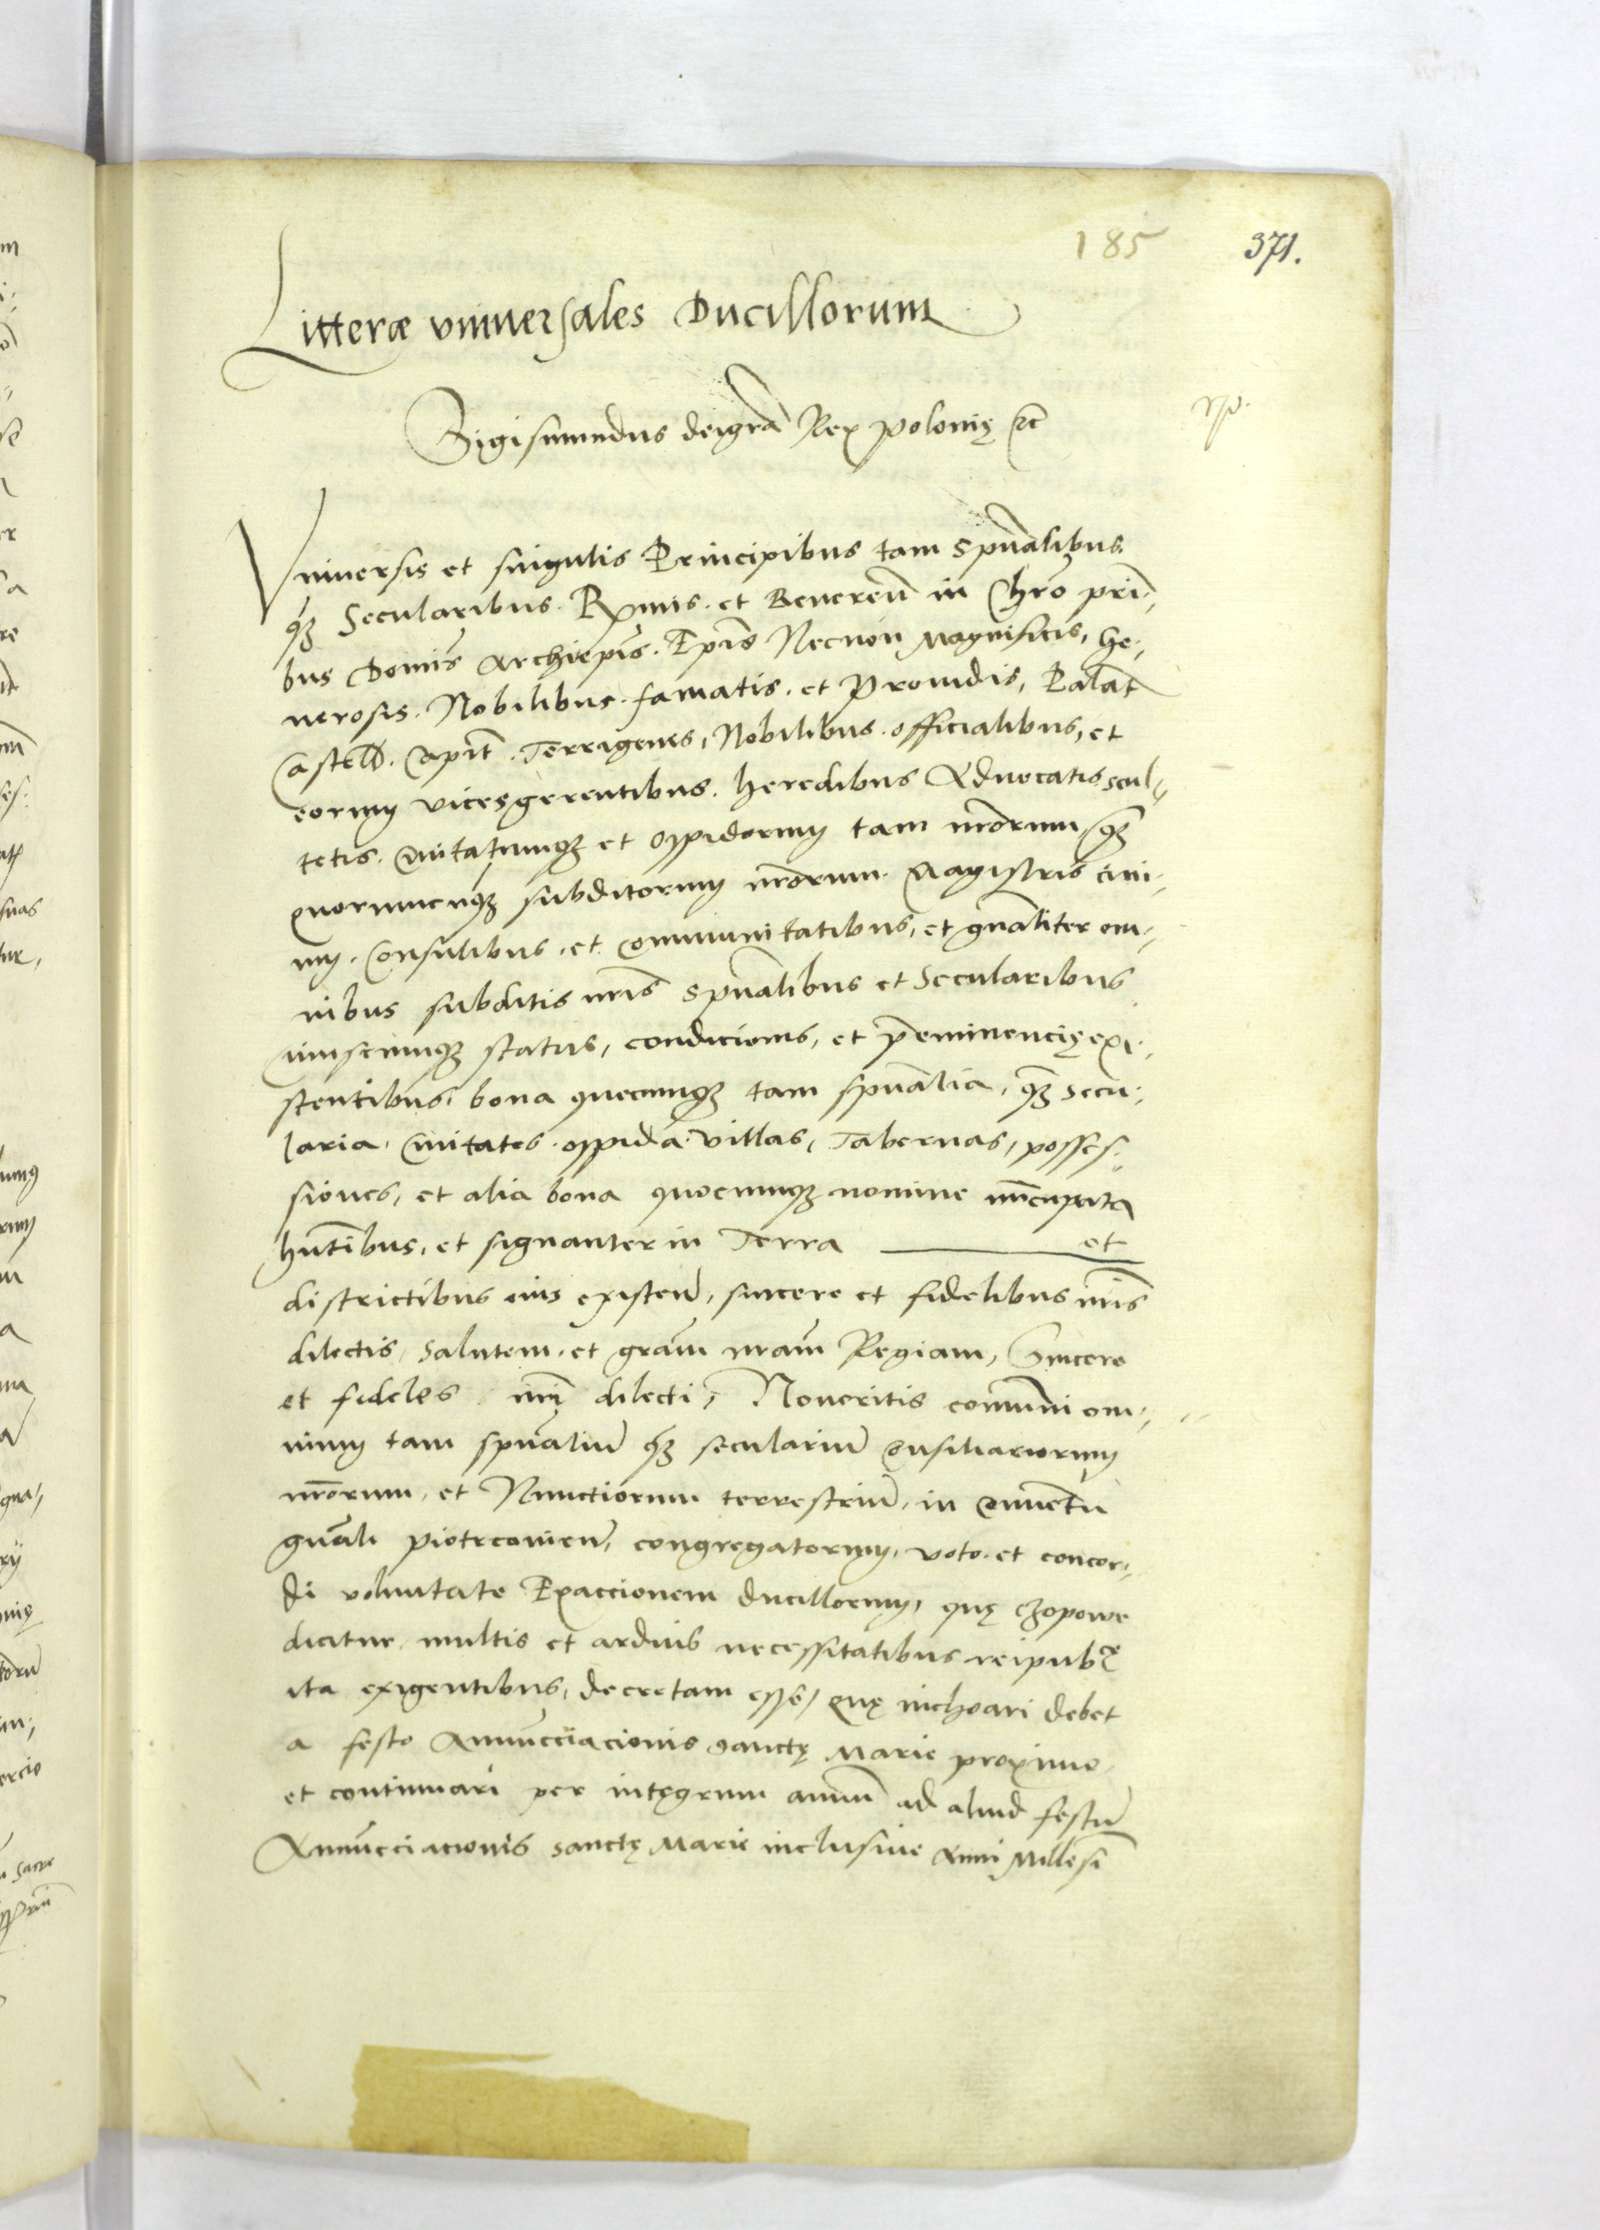 185
371.
Litteræ vniuersales Ducillorum
Sigismundus dei grã Rex Polonię ꝛc
Vniuersis et singulis Principibus tam spũalibus
q̃ȝ Secularibus. Rx̃mis. et Reuereñ in Chrõ pri᷉-
bus Domĩs Archiep̃is. Ep̃is Necnon Magnificis, Ge-
nerosis. Nobilibus. famatis. et Prouidis, Palat̃
Castell̃. Capit̃. Terrigenis, Nobilibus. officialibus, et
eorum vicesgerentibus. heredibus Aduocatis scul-
tetis. Ciuitatumqȝ et oppidorum tam nr̃orum q̃ȝ
quorumcunqȝ subditorum nr̃orum. Magistris ciui-
um. Consulibus. et communitatibus, et gnãliter om-
nibus subditis nr̃is spũalibus et Secularibus
cuiuscunqȝ status, condicionis, et p̃eminencię exi-
stentibus, bona quecunqȝ tam spũalia, q̃ȝ secu-
laria. Ciuitates. oppida. villas, Tabernas, posses-
siones, et alia bona quocunqȝ nomine nũcupata
hñtibus, et signanter in Terra et
districtibus eius existeñ, sincere et fidelibus nr̃is
dilectis, salutem. et grãm nr̃am Regiam, Sincere
et fideles nr̃i dilecti, Noueritis comuni om-
nium tam spũaliũ q̃ȝ seculariũ Consiliariorum
nr̃orum, et Nunctiorum terrestriũ, in Conuentu
gnãli Piotrcouieñ, congregatorum, voto. et concor-
di voluntate Exaccionem ducillorum, quę czopowe
dicitur, multis et arduis necessitatibus reipubᶜᵉ
ita exigentibus, decretam esse, quę inchoari debet
a festo Annũcciacionis sanctę Marie proximo,
et continuari per intęgrum annũ ad aliud festũ
Annũcciacionis sanctę Marie inclusiue Anni Millesĩ